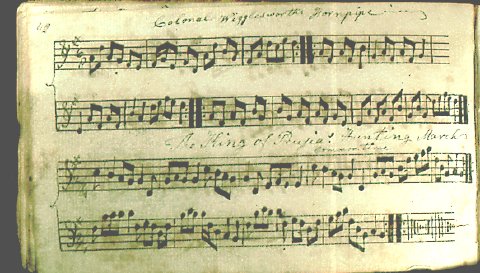 Colonel Wigglesworths Hornpipe
The King of Prusias Hunting March